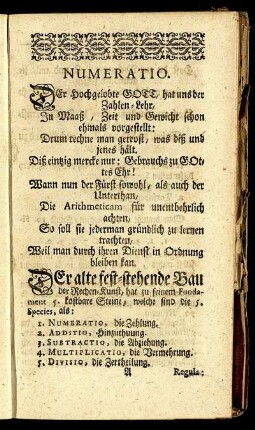 NUMERATIO.
DEr Hochgelobte GOTT, hat uns der
Zahlen-Lehr,
In Maaß, Zeit und Gewicht schon
ehmals vorgestellt:
Drum rechne man getrost, was diß und
jenes hält.
Diß eintzig mercke nur: Gebrauchs zu GOt-
tes Ehr!
Wann nun der Fürst sowohl, als auch der
Unterthan,
Die Arithmeticam für unentbehrlich
achten,
So soll sie jederman gründlich zu lernen
trachten,
Weil man durch ihren Dienst in Ordnung
bleiben kan.
DEr alte fest-stehende Bau
der Rechen-Kunst, hat zu seinem Funda-
ment 5. kostbare Steine, welche sind die 5.
Species, als:
1. NUMERATIO, die Zehlung.
2. ADDITIO, Hinzuthuung.
3. SUBTRACTIO, die Abziehung.
4. MULTIPLICATIO, die Vermehrung.
5. DIVISIO, die Zertheilung.
A Regula: